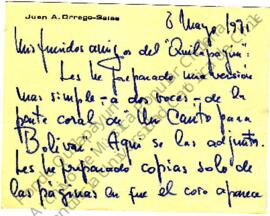 Juan A. Orrego-Salas
8 Mayo 1971
Mis queridos amigos del "Quilapayún":
Les he preparado una versión
mas simple - a dos voces - de la
parte coral de Un Canto para
Bolívar. Aquí se las adjunto.
Les he preparado copias solo de
las páginas en que el coro aparece